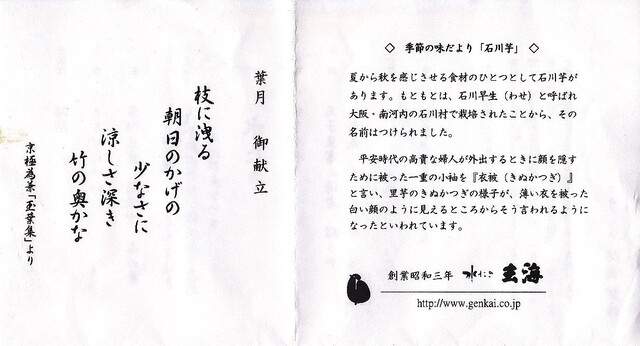 葉月　御献立
枝に洩る
朝日のかげの
少なさに
涼しさ深き
竹の奥かな
京極為兼「玉葉集」より
◇ 季節の味だより「石川芋」 ◇
夏から秋を感じさせる食材のひとつとして石川芋が
あります。もともとは、石川早生（わせ）と呼ばれ
大阪・南河内の石川村で栽培されたことから、その
名前はつけられました。
平安時代の高貴な婦人が外出するときに顔を隠す
ために被った一重の小袖を『衣被（きぬかつぎ）』
と言い、里芋のきぬかつぎの様子が、薄い衣を被った
白い顔のように見えるところからそう言われるように
なったといわれています。
創業昭和三年 水たき 玄海
http://www.genkai.co.jp